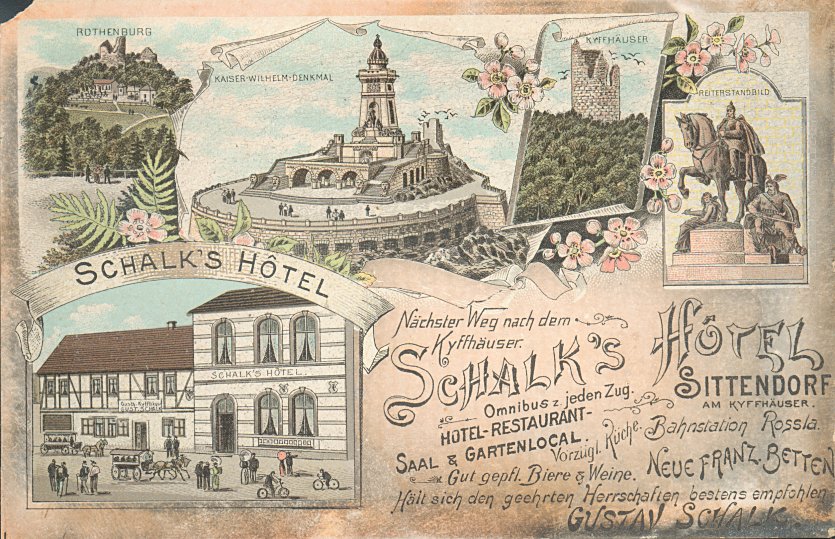 ROTHENBURG
KAISER-WILHELM-DENKMAL
KYFFHÄUSER
REITERSTANDBILD
SCHALK'S HÔTEL
SCHALK'S HÔTEL.
GUST. SCHALK
Nächster Weg nach dem
Kyffhäuser.
SCHALK'S HÔTEL
SITTENDORF
AM KYFFHÄUSER.
Omnibus z. jeden Zug.
HÔTEL-RESTAURANT-
SAAL & GARTENLOCAL.
Vorzügl. Küche.
Bahnstation Rossla.
Gut gepfl. Biere & Weine.
NEUE FRANZ. BETTEN
Hält sich den geehrten Herrschaften bestens empfohlen
GUSTAV SCHALK.